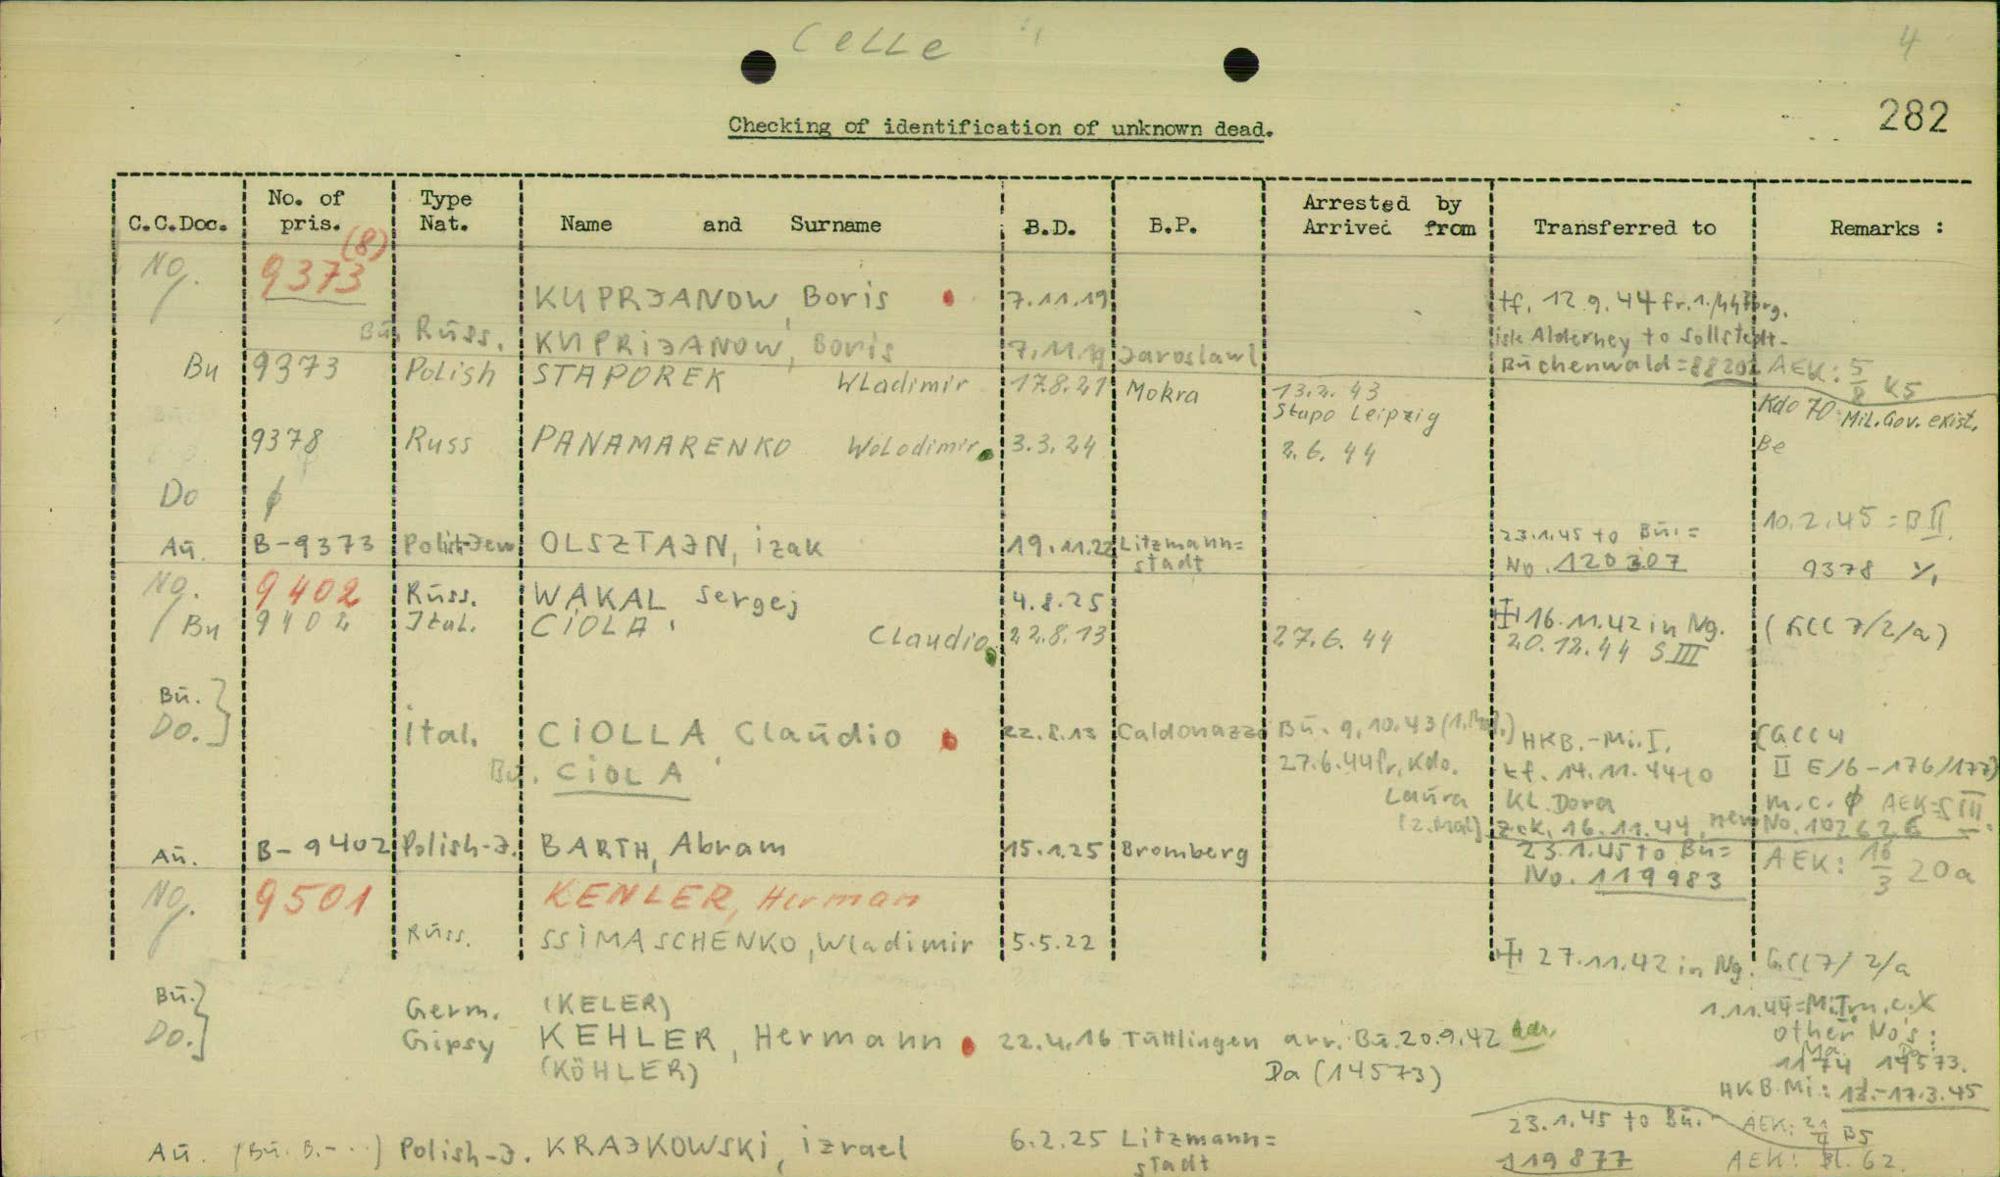 Celle
4
282
Checking of identification of unknown dead.
C.C.Doc. No. of pris. Type Nat. Name and Surname B.D. B.P. Arrested by Arrived from Transferred to Remarks :
Ng. 9373 (8) KUPRJANOW, Boris 7.11.19 tf. 12.9.44 fr. 1.
Bu. Russ. KUPRIJANOW, Boris 7.11.19 Jaroslawl Alderney to Sollstedt-
Buchenwald = AEK: 5/8 K5
Bu 9373 Polish STAPOREK Wladimir 17.8.21 Mokra 13.2.43 Stapo Leipzig Kdo 70 Mil. Gov. exist.
9378 Russ PANAMARENKO Wolodimir 3.3.24 2.6.44 Be
Do ∮
10.2.45 = B II
Aü. B-9373 Polish-Jew OLSZTAJN, izak 19.11.22 Litzmann=stadt 23.1.45 to Bü.= No. 120307 9378 ٪
Ng. 9402 Rüss. WAKAL Sergej 4.8.25 16.11.42 in Ng. (GCC 7/2/a)
Bu 9402 Ital. CIOLA, Claudio 22.8.13 27.6.44 20.12.44 S III
Bü. Do. ital. CIOLLA, Claüdio 22.8.13 Caldonazzo Bü. 9.10.43 (1. Mal.) HKB.-Mi. I. (GCC 4
Bü. CIOLA 27.6.44 fr. Kdo. tf. 14.11.44 to II E/6-176/177)
Laüra KL. Dora m.c. ∮ AEK=S III
(2. Mal) zck. 16.11.44, new No. 102626
Aü. B-9402 Polish-J. BARTH, Abram 15.1.25 Bromberg 23.1.45 to Bü= No. 119983 AEK: 16/3 20a
Ng. 9501 KENLER, Herman
Rüss. SSIMASCHENKO, Wladimir 5.5.22 27.11.42 in Ng. GCC7/2/a
Bü. Do. Germ. Gipsy (KELER)
KEHLER, Hermann 22.4.16 Tüttlingen arr. Bü. 20.9.42
(KÖHLER) Da (14573)
1.11.44=
other No's:
Ma. Da:
1174 14573.
HKB. Mi: -17.3.45
Aü. (Bü. B.-...) Polish-J. KRAJKOWSKI, izrael 6.2.25 Litzmann=stadt 23.1.45 to Bü. 119877 AEK: B5
AEK: Bl. 62.